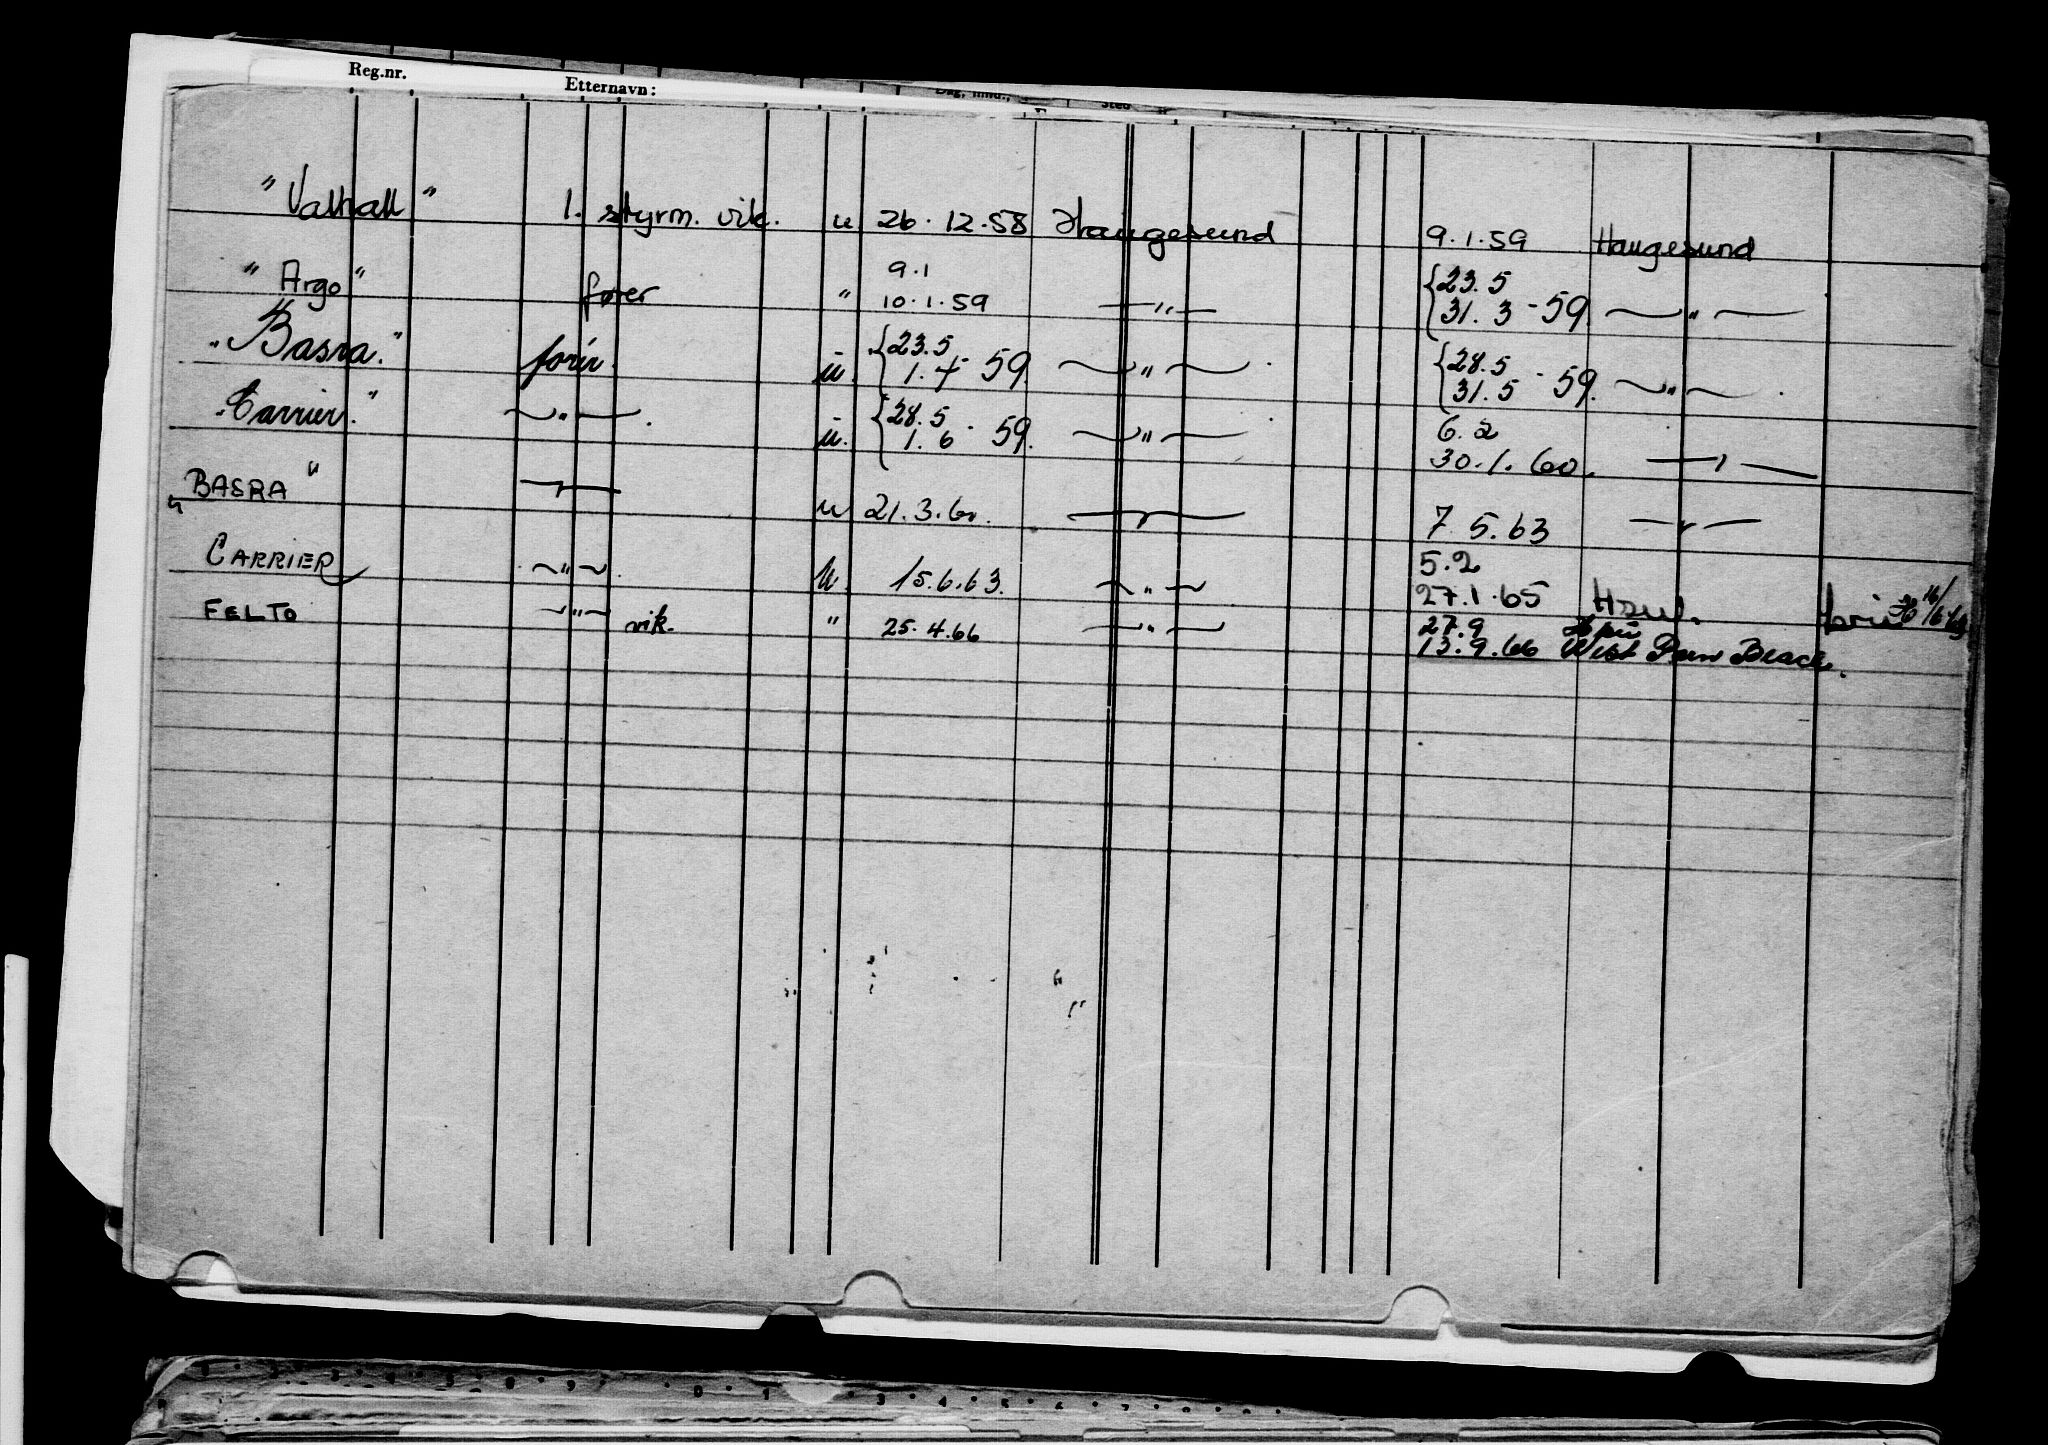 Reg.nr. Etternavn:
"Valhall" 1. styrm. vik. u 26.12.58 Haugesund 9.1.59 Haugesund
"Argo" fører " 9.1
10.1.59 —"— {23.5
31.3 - 59 —"—
"Basra." förer. u. {23.5
1.4 - 59. —"— {28.5
31.5 - 59. —"—
"Carrier." —"— u. {28.5
1.6 - 59. —"— 6.2
30.1.60. —"—
"BASRA" —"— u 21.3.60. —"— 7.5.63 —"—
CARRIER —"— u. 15.6.63. —"— 5.2
27.1.65
FELTO —"— vik. " 25.4.66 —"— 27.9
13.9.66 West Palm Beach.